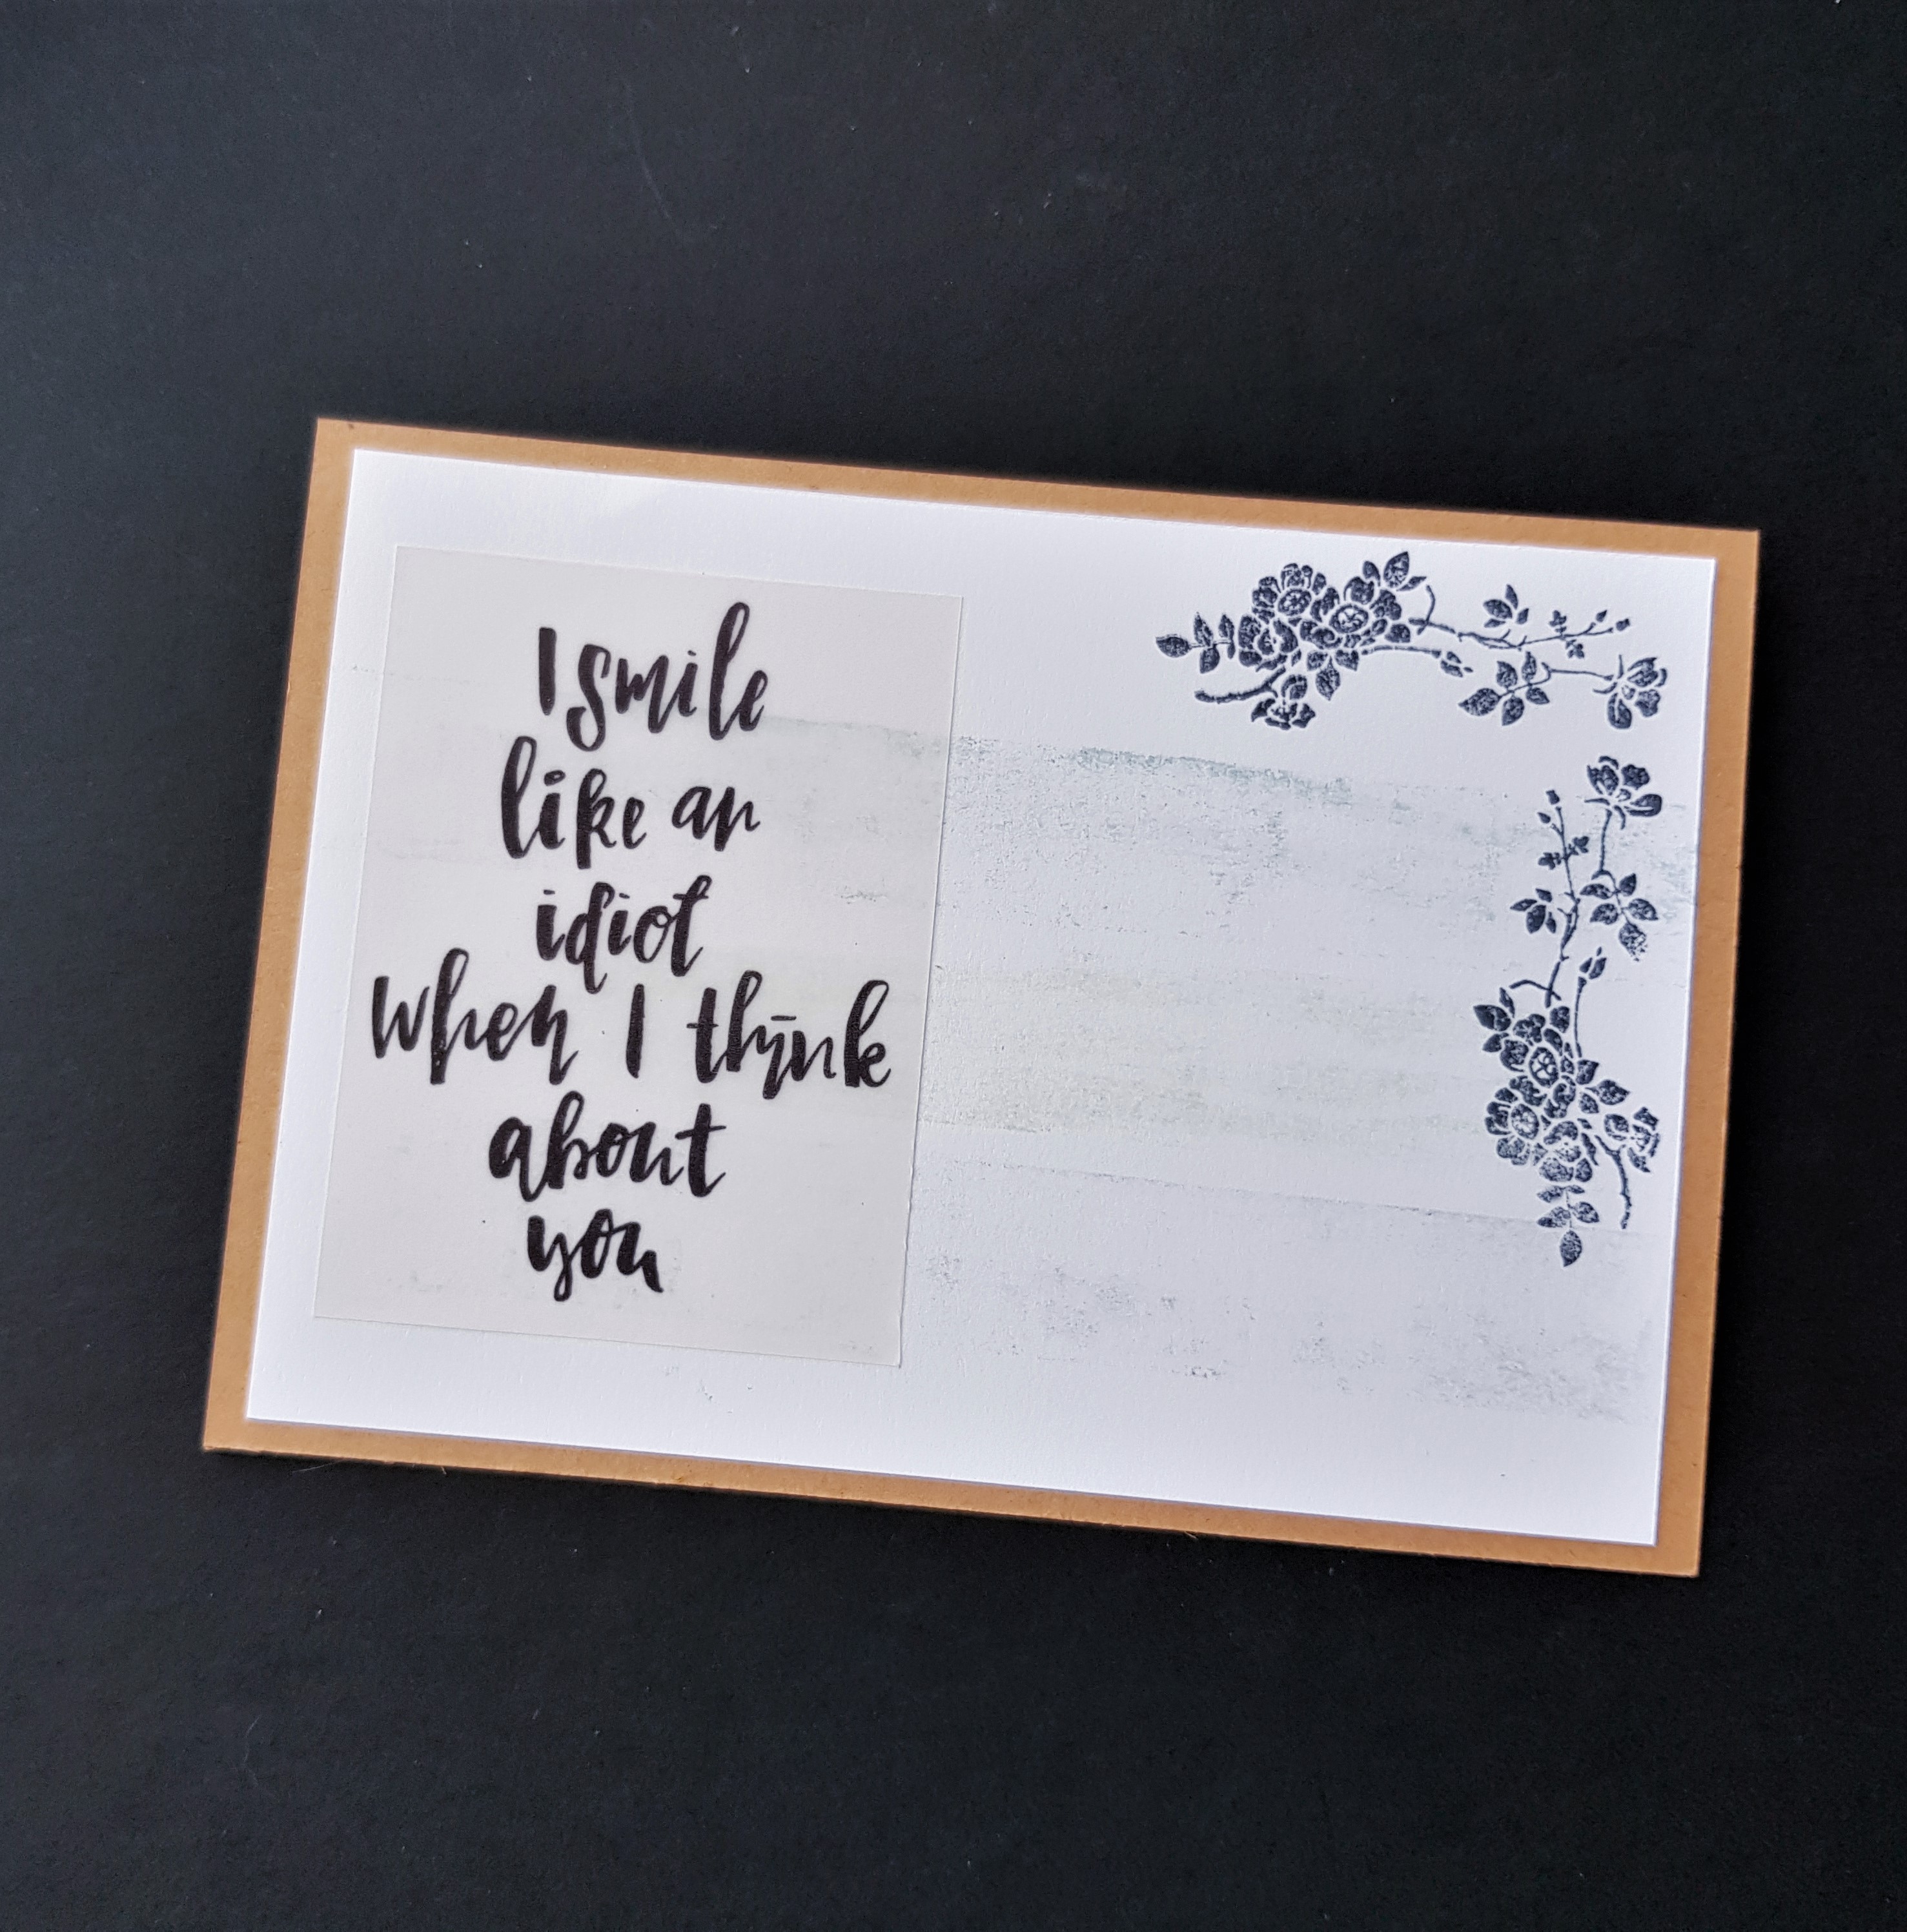 I smile
like an
idiot
when I think
about
you